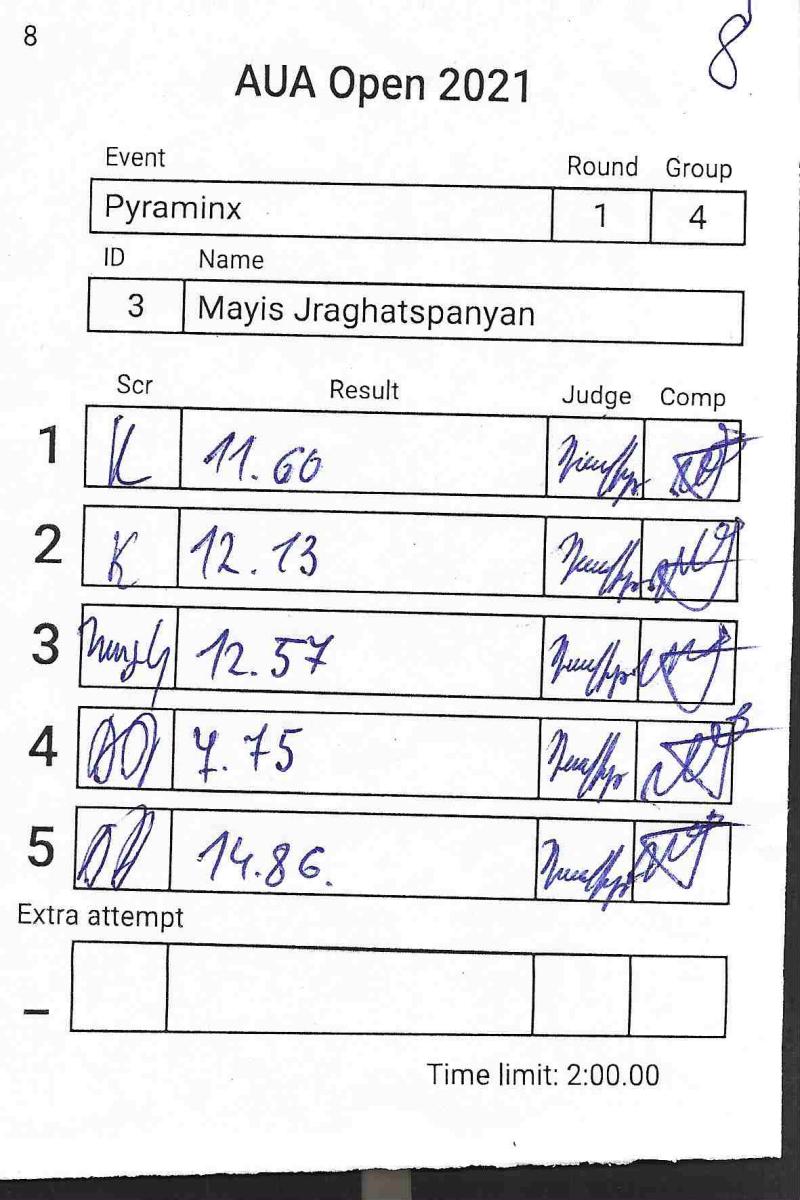 8
8
AUA Open 2021
Event Round Group
Pyraminx 1 4
ID Name
3 Mayis Jraghatspanyan
Scr Result Judge Comp
1 K 11.60
2 K 12.13
3 12.57
4 7.75
5 14.86.
Extra attempt
_
Time limit: 2:00.00